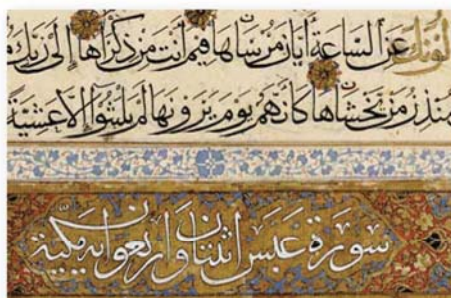 لونك عن الساعة أيان مرساها فيم أنت من ذكراها إلى ربك
منذر من يخشاها كأنهم يوم يرونها لم يلبثوا إلا عشية
سورة عبس اثنتان وأربعون آية مكية